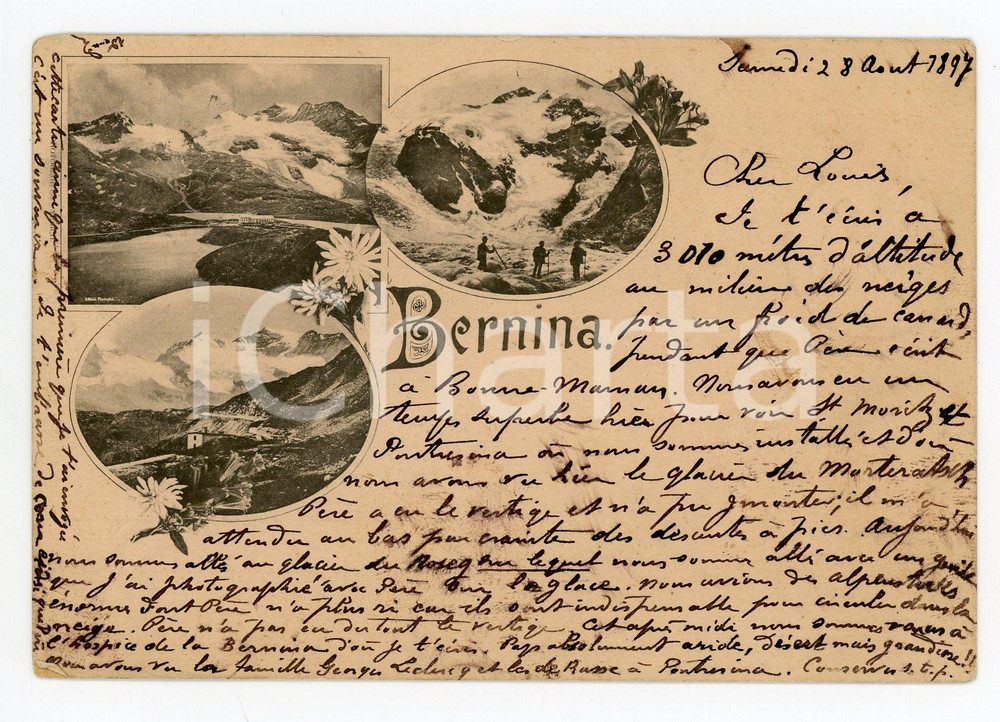 Samedi 28 Aout 1897
Cher Louis,
Je t'écris a
3010 mètres d'altitude
au milieu des neiges
par un froid de canard,
pendant que Père écrit
à Bonne-Maman. Nous avons eu un
temps superbe hier pour voir St Moritz et
Pontresina où nous sommes installés et d'où
nous avons vu hier le glacier du Morteratsch
Père a eu le vertige et n'a pu y monter; il m'a
attendu au bas par crainte des descentes à pics. Aujourd'hui
nous sommes allés au glacier du Roseg sur lequel nous sommes allé avec un guide
que j'ai photographié avec Père sur la glace. Nous avions des alpenstocks
énormes dont Père n'a plus ri car ils sont indispensable pour circuler dans la
neige. Père n'a pas eu du tout le vertige. Cet après midi nous sommes venus à
l'hospice de la Bernina d'où je t'écris. Pays absolument aride, désert mais grandiose!!
Nous avons vu la famille Georges Leclercq et les de Russe à Pontresina. Conserves s.t.p.
cette carte ainsi que la première que je t'ai envoyé
c'est un souvenir. Je t'embrasse
Bernina.
iCharta